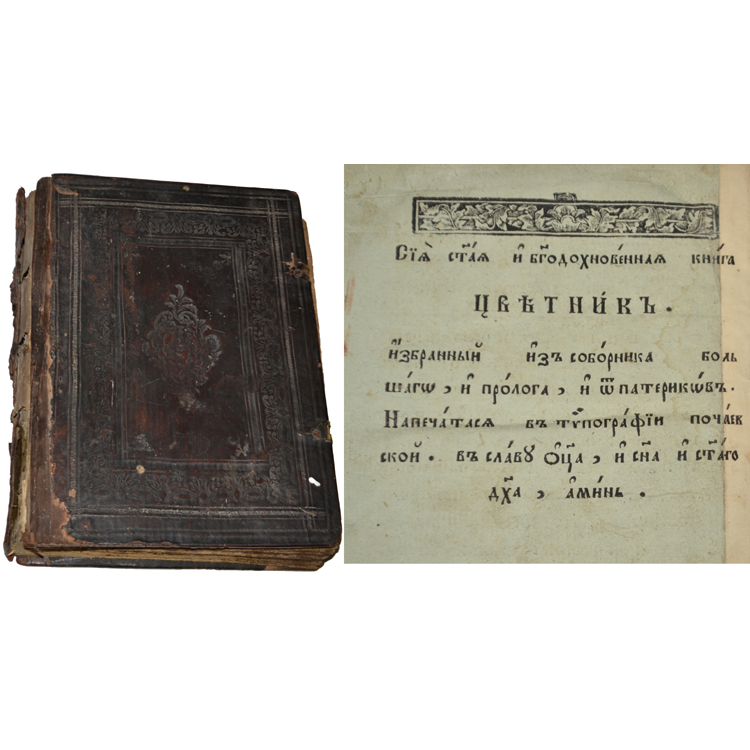 Сїѧ̀ ст҃аѧ и҆ бг҃одохнове́ннаѧ кни́га
ЦВѢТНИ́КЪ.
и҆збранный и҆зъ собо́рника боль
шагѡ, и҆ пролога, и҆ ѿ патерикѡвъ.
Напеча́тасѧ въ тѷпогра́фїи поча́ев
ской. въ сла́ву ѻ҆ц҃а, и҆ сн҃а и҆ ст҃а́го
дх҃а, а҆ми́нь.